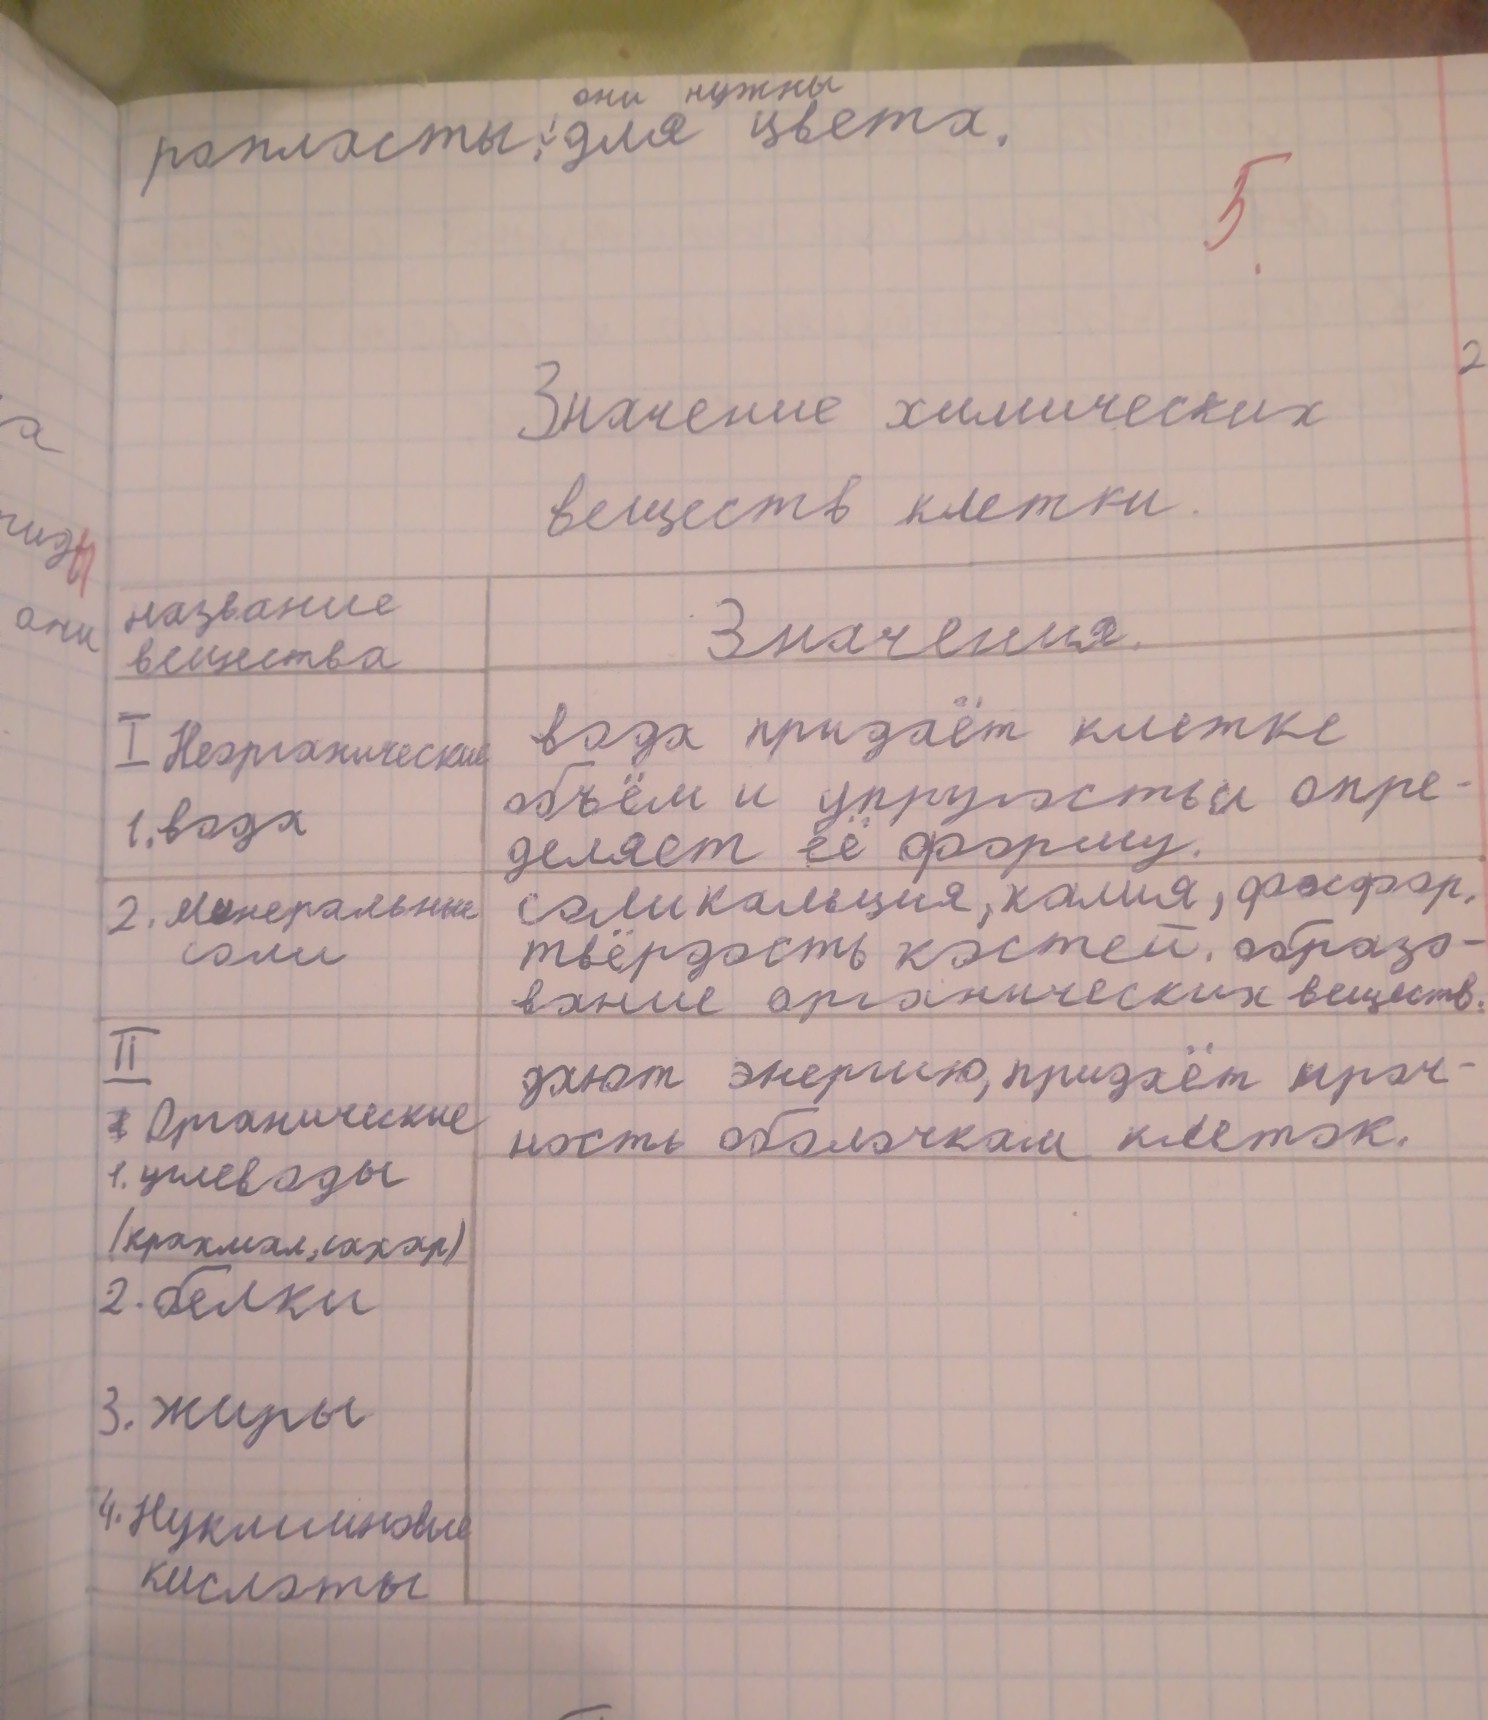 они нужны
ропласты; для цвета.
5.
2
Значение химических
веществ клетки.
а
они
название
вещества
Значения.
I Неорганические
1. вода
вода придаёт клетке
объём и упругость и опре-
деляет её форму.
2. Минеральные
соли
соли кальция, калия, фосфор.
твёрдость костей. образо-
вание органических веществ.
II
Органические
1. углеводы
(крахмал, сахар)
дают энергию, придаёт проч-
ность оболочкам клеток.
2. белки
3. жиры
4. Нуклииновые
кислоты